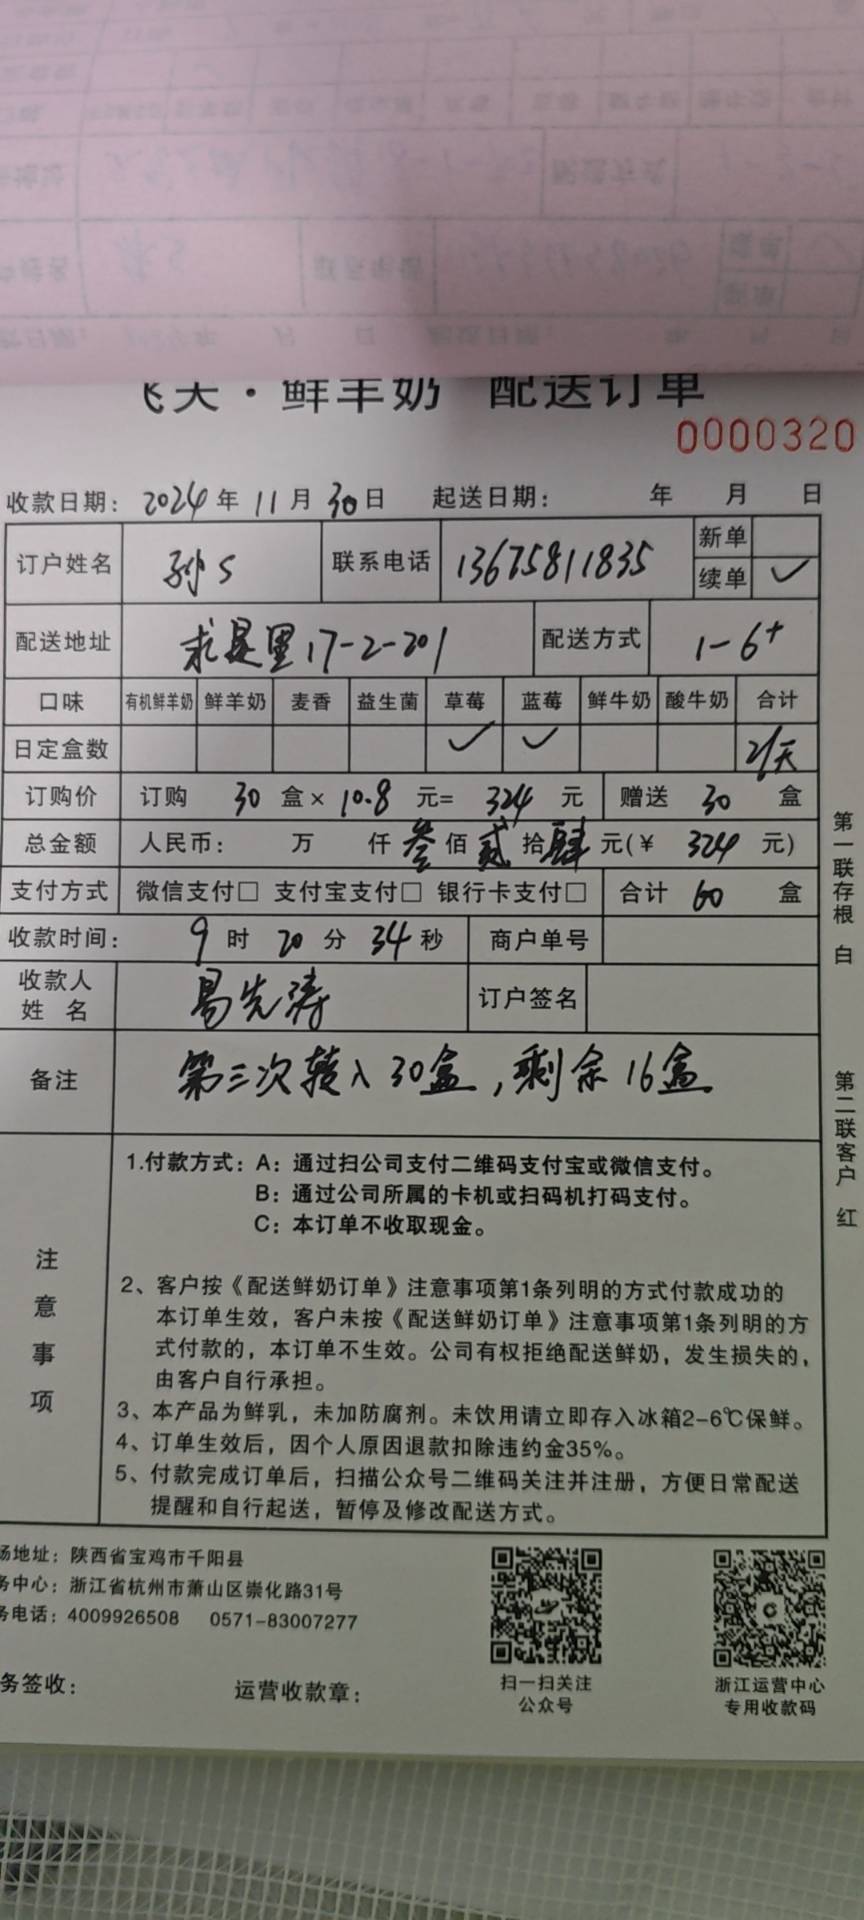 飞天·鲜羊奶 配送订单
0000320
收款日期：2024年11月30日 起送日期： 年 月 日
订户姓名 孙S 联系电话 13675811835 新单
续单 ✓
配送地址 求是里17-2-201 配送方式 1-6+
口味 有机鲜羊奶 鲜羊奶 麦香 益生菌 草莓 蓝莓 鲜牛奶 酸牛奶 合计
日定盒数 ✓ ✓ 2/天
订购价 订购 30 盒× 10.8 元= 324 元 赠送 30 盒
总金额 人民币： 万 仟 叁佰 贰拾 肆元(¥ 324 元)
支付方式 微信支付□ 支付宝支付□ 银行卡支付□ 合计 60 盒
收款时间： 9时 20分 34秒 商户单号
收款人
姓 名 易先涛 订户签名
备注 第三次转入30盒，剩余16盒
注意事项
1.付款方式：A：通过扫公司支付二维码支付宝或微信支付。
B：通过公司所属的卡机或扫码机打码支付。
C：本订单不收取现金。
2、客户按《配送鲜奶订单》注意事项第1条列明的方式付款成功的
本订单生效，客户未按《配送鲜奶订单》注意事项第1条列明的方
式付款的，本订单不生效。公司有权拒绝配送鲜奶，发生损失的，
由客户自行承担。
3、本产品为鲜乳，未加防腐剂。未饮用请立即存入冰箱2-6℃保鲜。
4、订单生效后，因个人原因退款扣除违约金35%。
5、付款完成订单后，扫描公众号二维码关注并注册，方便日常配送
提醒和自行起送，暂停及修改配送方式。
第一联存根 白
第二联客户 红
场地址：陕西省宝鸡市千阳县
务中心：浙江省杭州市萧山区崇化路31号
务电话：4009926508 0571-83007277
务签收： 运营收款章：
扫一扫关注
公众号
浙江运营中心
专用收款码